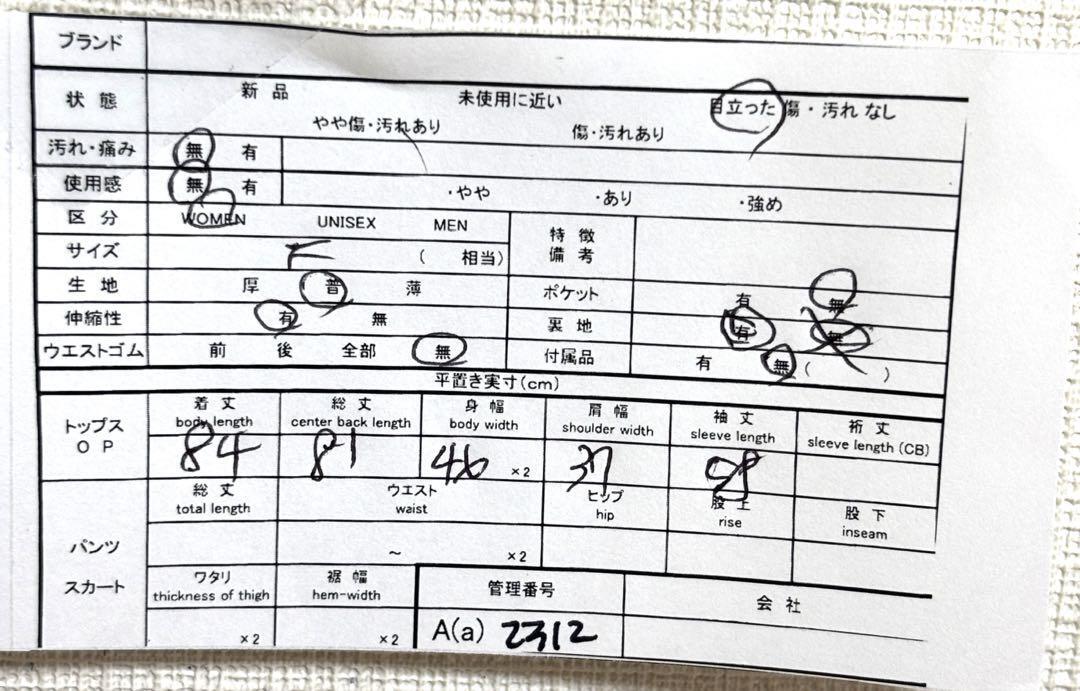 ブランド
状態 新品 未使用に近い 目立った傷・汚れなし
やや傷・汚れあり 傷・汚れあり
汚れ・痛み 無 有
使用感 無 有 ・やや ・あり ・強め
区分 WOMEN UNISEX MEN 特徴
備考
サイズ F ( 相当)
生地 厚 普 薄 ポケット 有 無
伸縮性 有 無 裏地 有 無
ウエストゴム 前 後 全部 無 付属品 有 無 ( )
平置き実寸(cm)
トップス
OP
着丈 総丈 身幅 肩幅 袖丈 裄丈
body length center back length body width shoulder width sleeve length sleeve length (CB)
84 81 46 ×2 37
総丈 ウエスト ヒップ 股上 股下
total length waist hip rise inseam
パンツ ～ ×2
スカート ワタリ 裾幅 管理番号 会社
thickness of thigh hem-width
×2 ×2 A(a) 2312